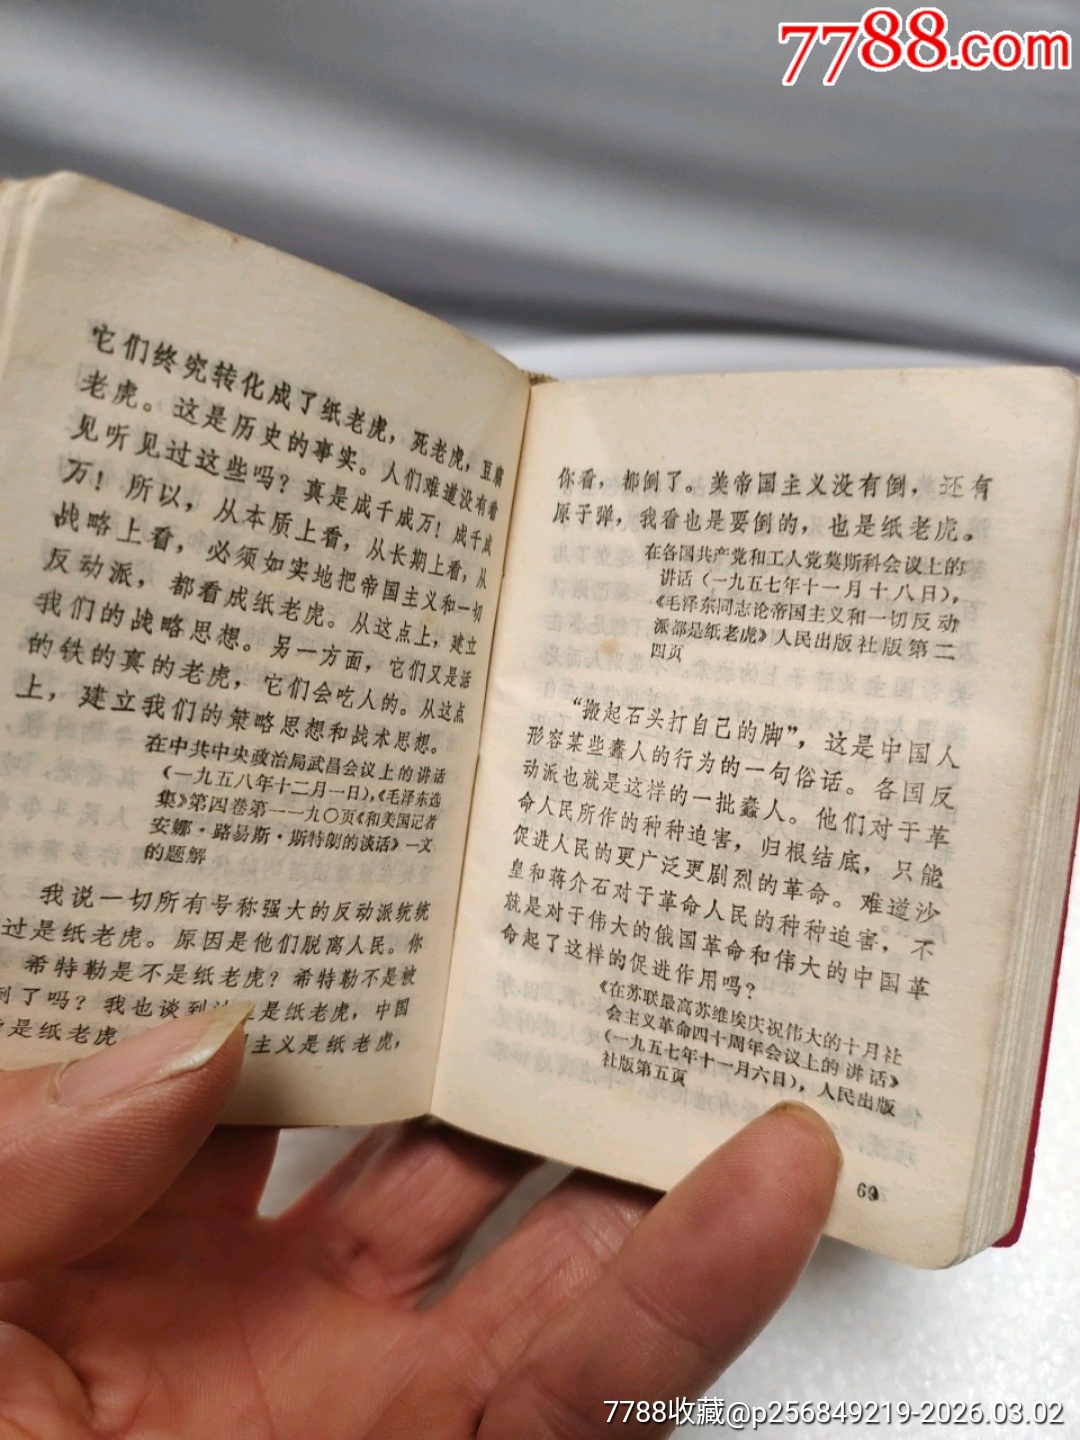 7788.com
它们终究转化成了纸老虎，死老虎，豆腐
老虎。这是历史的事实。人们难道没有看
见听见过这些吗？真是成千成万！成千成
万！所以，从本质上看，从长期上看，从
战略上看，必须如实地把帝国主义和一切
反动派，都看成纸老虎。从这点上，建立
我们的战略思想。另一方面，它们又是活
的铁的真的老虎，它们会吃人的。从这点
上，建立我们的策略思想和战术思想。
在中共中央政治局武昌会议上的讲话
（一九五八年十二月一日），《毛泽东选
集》第四卷第一一九〇页《和美国记者
安娜·路易斯·斯特朗的谈话》一文
的题解
我说一切所有号称强大的反动派统统
过是纸老虎。原因是他们脱离人民。你
希特勒是不是纸老虎？希特勒不是被
到了吗？我也谈到 是纸老虎，中国
是纸老虎 主义是纸老虎，
你看，都倒了。美帝国主义没有倒，还有
原子弹，我看也是要倒的，也是纸老虎。
在各国共产党和工人党莫斯科会议上的
讲话（一九五七年十一月十八日），
《毛泽东同志论帝国主义和一切反动
派都是纸老虎》人民出版社版第二
四页
“搬起石头打自己的脚”，这是中国人
形容某些蠢人的行为的一句俗话。各国反
动派也就是这样的一批蠢人。他们对于革
命人民所作的种种迫害，归根结底，只能
促进人民的更广泛更剧烈的革命。难道沙
皇和蒋介石对于革命人民的种种迫害，不
就是对于伟大的俄国革命和伟大的中国革
命起了这样的促进作用吗？
《在苏联最高苏维埃庆祝伟大的十月社
会主义革命四十周年会议上的讲话》
（一九五七年十一月六日），人民出版
社版第五页
69
7788收藏@p256849219-2026.03.02